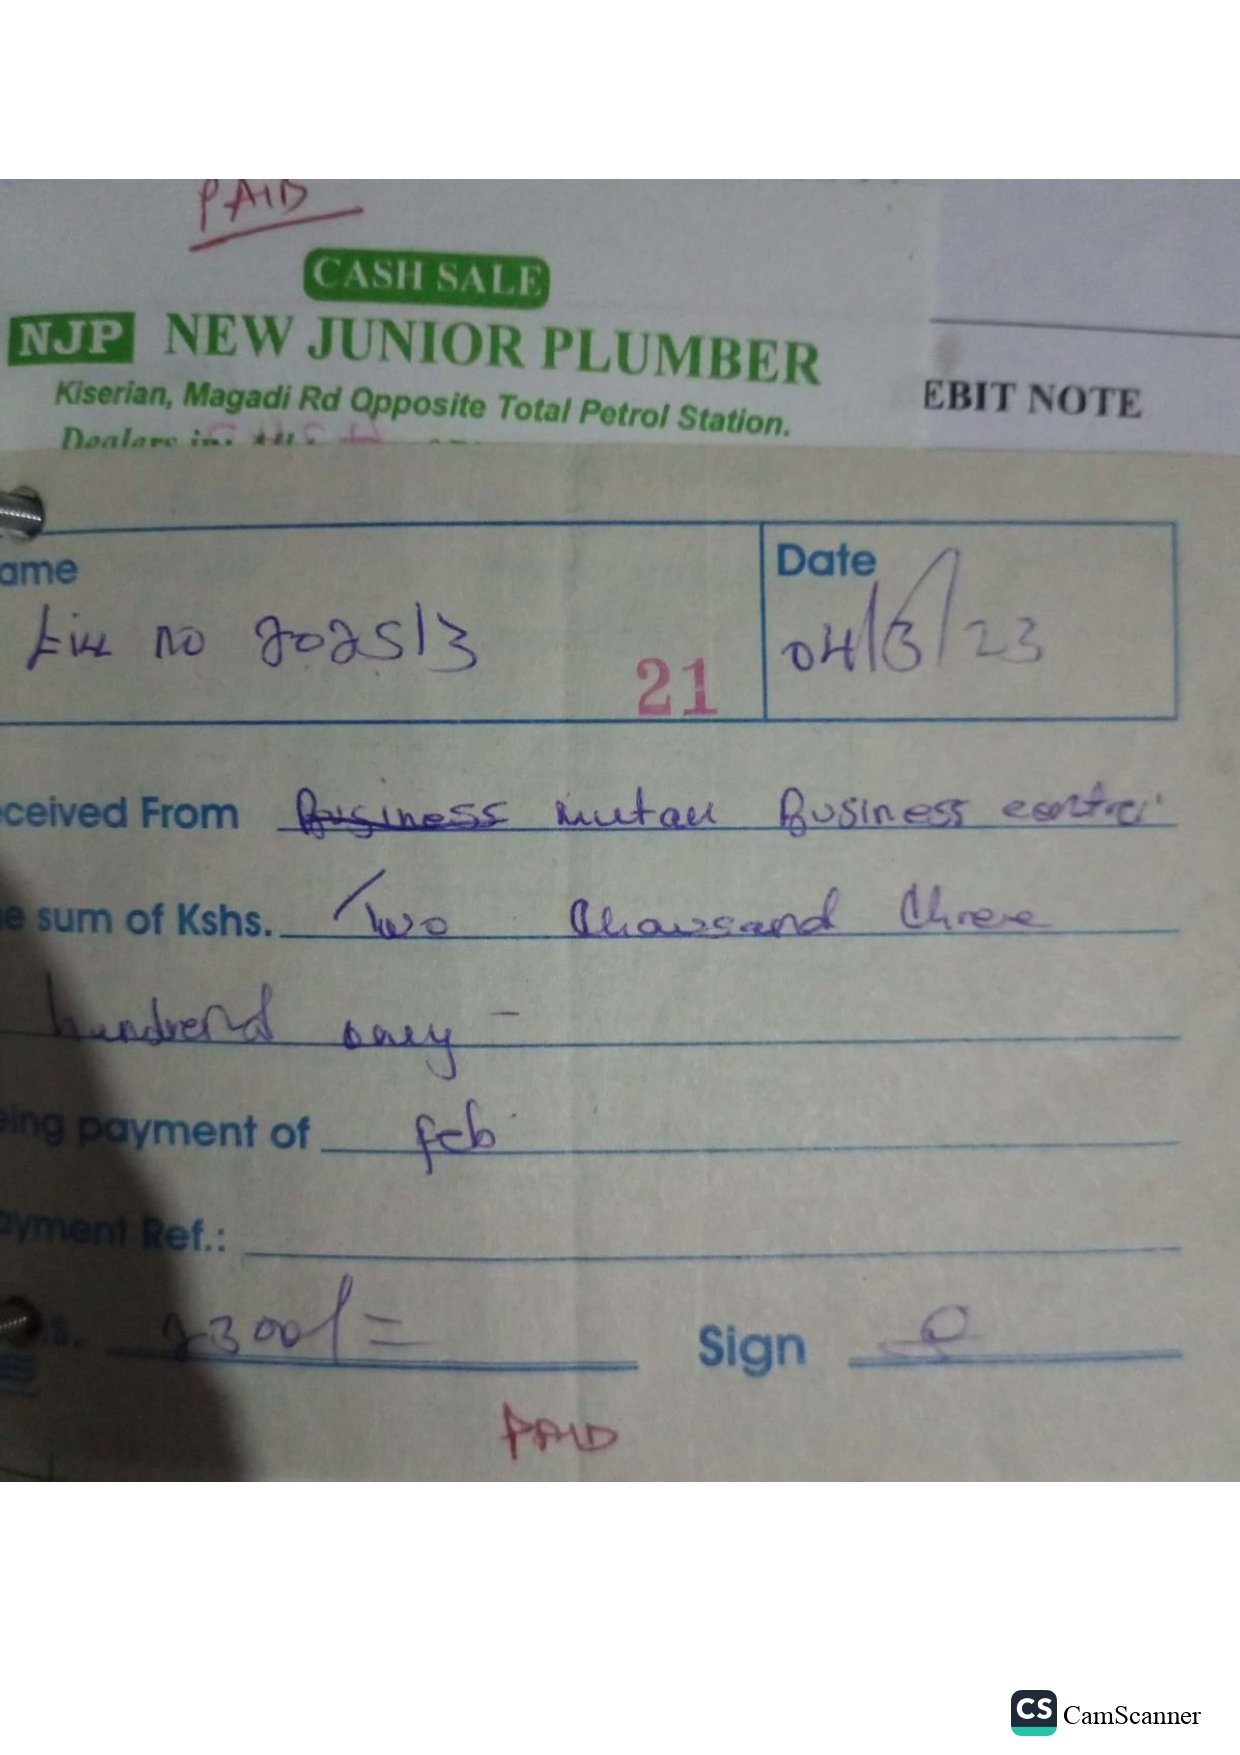 PAID
CASH SALE
NJP NEW JUNIOR PLUMBER
Kiserian, Magadi Rd Opposite Total Petrol Station.
EBIT NOTE
Dealers in:
ame
Date
no 202513
21
04/3/23
ceived From Business mutau Business
e sum of Kshs. Two thousand three
hundrend only -
eing payment of feb
ayment Ref.:
s. 2300/=
Sign
PAID
CS CamScanner